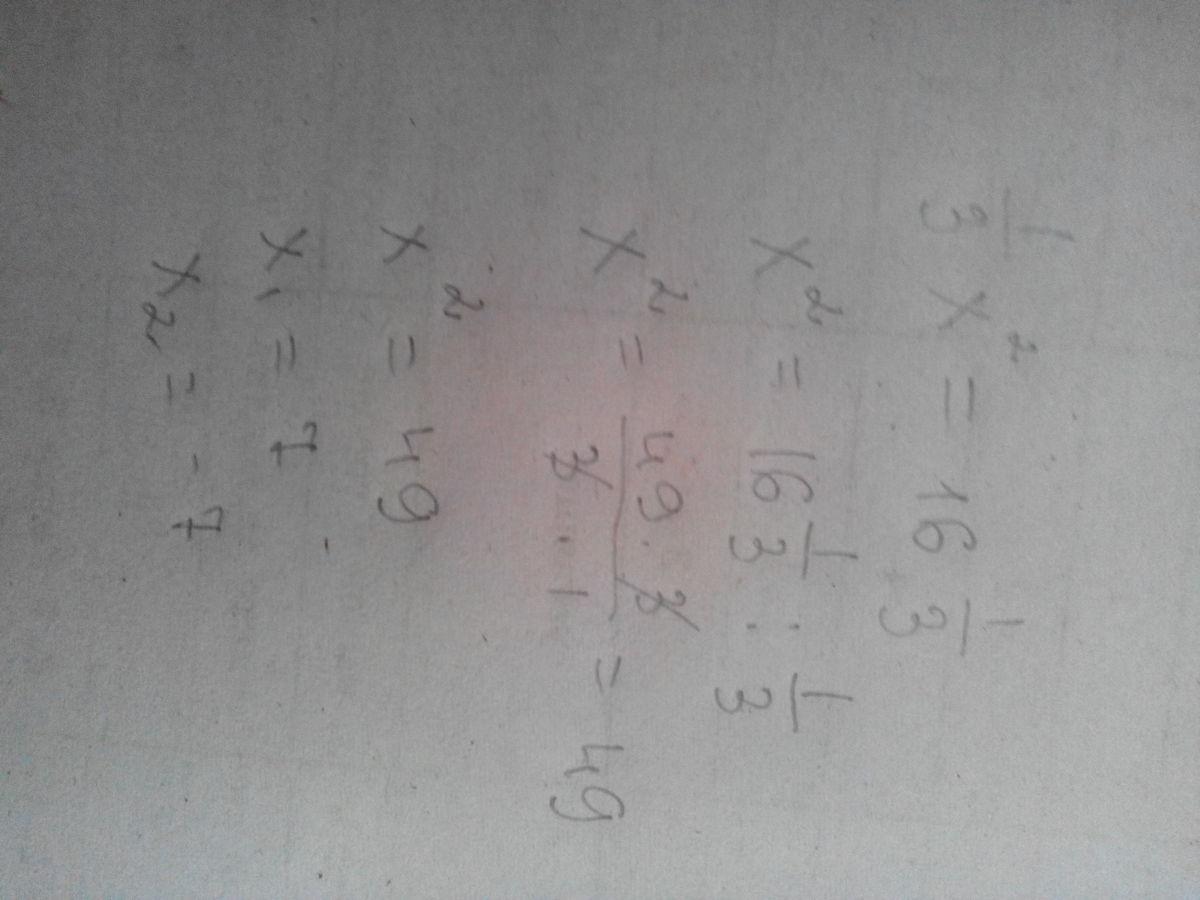 1/3 x² = 16 1/3
x² = 16 1/3 : 1/3
x² = (49 · 3)/(3 · 1) = 49
x² = 49
x₁ = 7
x₂ = -7